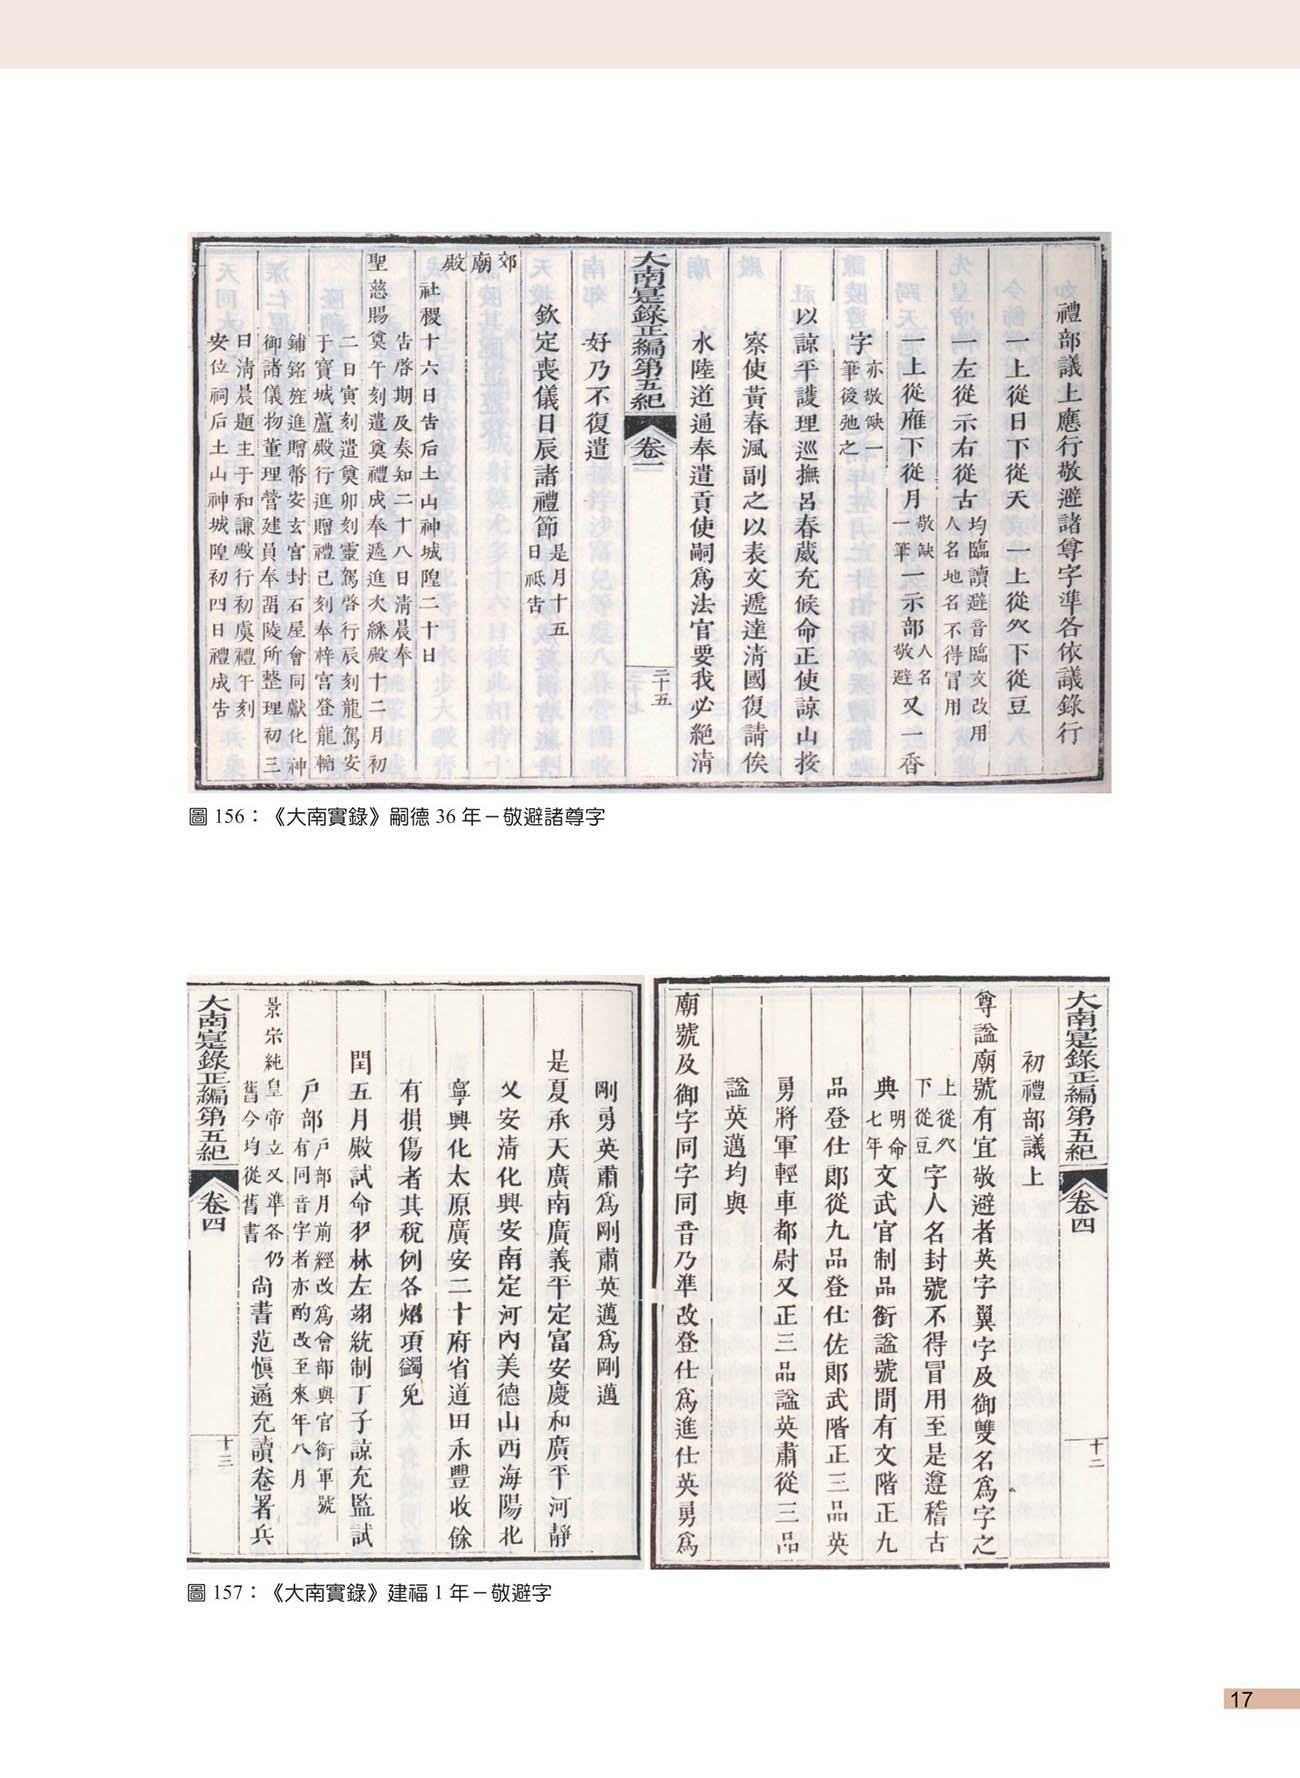 禮部議上應行敬避諸尊字準各依議錄行
一上從日下從天一上從癶下從豆
一左從示右從古均臨讀避音臨文改用人名地名不得冒用
一上從䧹下從月敬缺一筆一示部人名敬避又一香
字亦敬缺一筆後弛之
以諒平護理巡撫呂春葳充候命正使諒山按
察使黃春風副之以表文遞達清國復請俟
水陸道通奉遣貢使嗣爲法官要我必絕清
大南寔錄正編第五紀 卷一 二十五
好乃不復遣
欽定喪儀日辰諸禮節是月十五日祇告
郊
廟
殿
社稷十六日告后土山神城隍二十日
告啓期及奏知二十八日清晨奉
聖慈賜奠午刻遣奠禮成奉遞進大綵殿十二月初
二日寅刻遣奠卯刻靈駕啓行辰刻龍駕安
于寶城蘆殿行進贈禮巳刻奉梓宮登龍輴
鋪銘旌進贈幣安玄宮封石屋會同獻化神
御諸儀物董理營建員奉畱陵所整理初三
日淸晨題主于和謙殿行初虞禮午刻
安位祠后土山神城隍初四日禮成告
圖 156：《大南實錄》嗣德 36 年－敬避諸尊字
大南寔錄正編第五紀 卷四 十二
初禮部議上
尊諡廟號有宜敬避者英字翼字及御雙名爲字之
上從癶下從豆字人名封號不得冒用至是遵稽古
典明命七年文武官制品銜諡號間有文階正九
品登仕郎從九品登仕佐郎武階正三品英
勇將軍輕車都尉又正三品諡英肅從三品
諡英邁均與
廟號及御字同字同音乃準改登仕爲進仕英勇爲
剛勇英肅爲剛肅英邁爲剛邁
是夏承天廣南廣義平定富安慶和廣平河靜
乂安清化興安南定河內美德山西海陽北
寧興化太原廣安二十府省道田禾豐收餘
有損傷者其稅例各炤項蠲免
閏五月殿試命羽林左翊統制丁子諒充監試
戶部戶部月前經改爲會部與官銜軍號有同音字者亦酌改至來年八月
景宗純皇帝立又準各仍舊今均從舊書尚書范愼遹充讀卷署兵
大南寔錄正編第五紀 卷四 十三
圖 157：《大南實錄》建福 1 年－敬避字
17